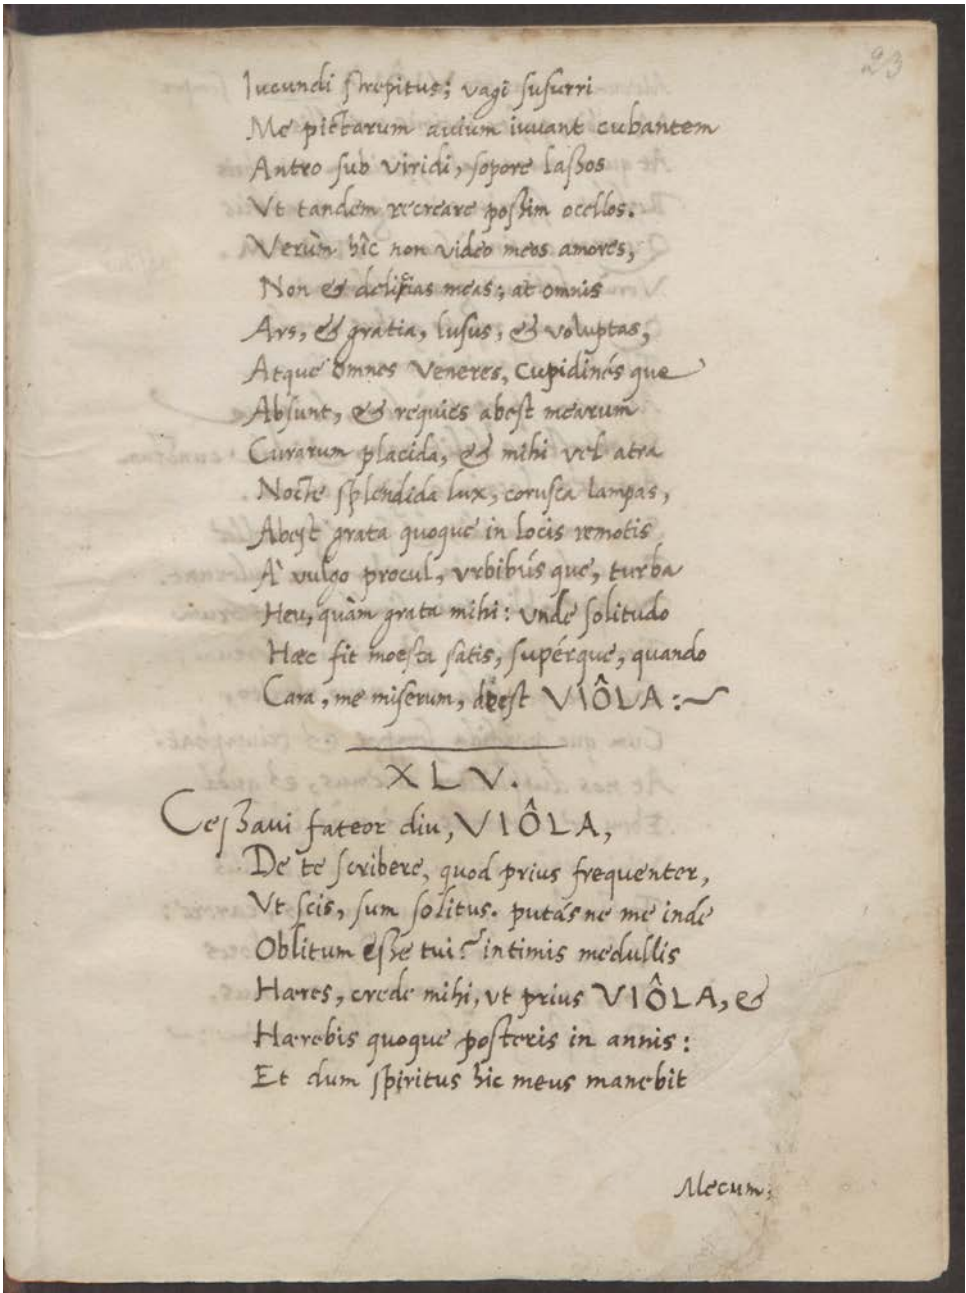 23
Iucundi strepitus; vagi susurri
Me pictarum auium iuuant cubantem
Antro sub viridi, sopore laßos
Vt tandem recreare poßim ocellos.
Verùm hîc non video meos amores,
Non & delicias meas; at omnis
Ars, & gratia, lusus, & voluptas,
Atque omnes Veneres, Cupidinésque
Absunt, & requies abest mearum
Curarum placida, & mihi vel atra
Nocte splendida lux, corusca lampas,
Abest grata quoque in locis remotis
A' vulgo procul, vrbibúsque, turba
Heu, quàm grata mihi: vnde solitudo
Hæc fit moesta satis, supérque, quando
Cara, me miserum, deest VIÔLA:~
XLV.
Ceßaui fateor diu, VIÔLA,
De te scribere, quod prius frequenter,
Vt scis, sum solitus. putásne me inde
Oblitum eße tui? intimis medullis
Hæres, crede mihi, vt prius VIÔLA, &
Hærebis quoque posteris in annis:
Et dum spiritus hic meus manebit
Mecum,